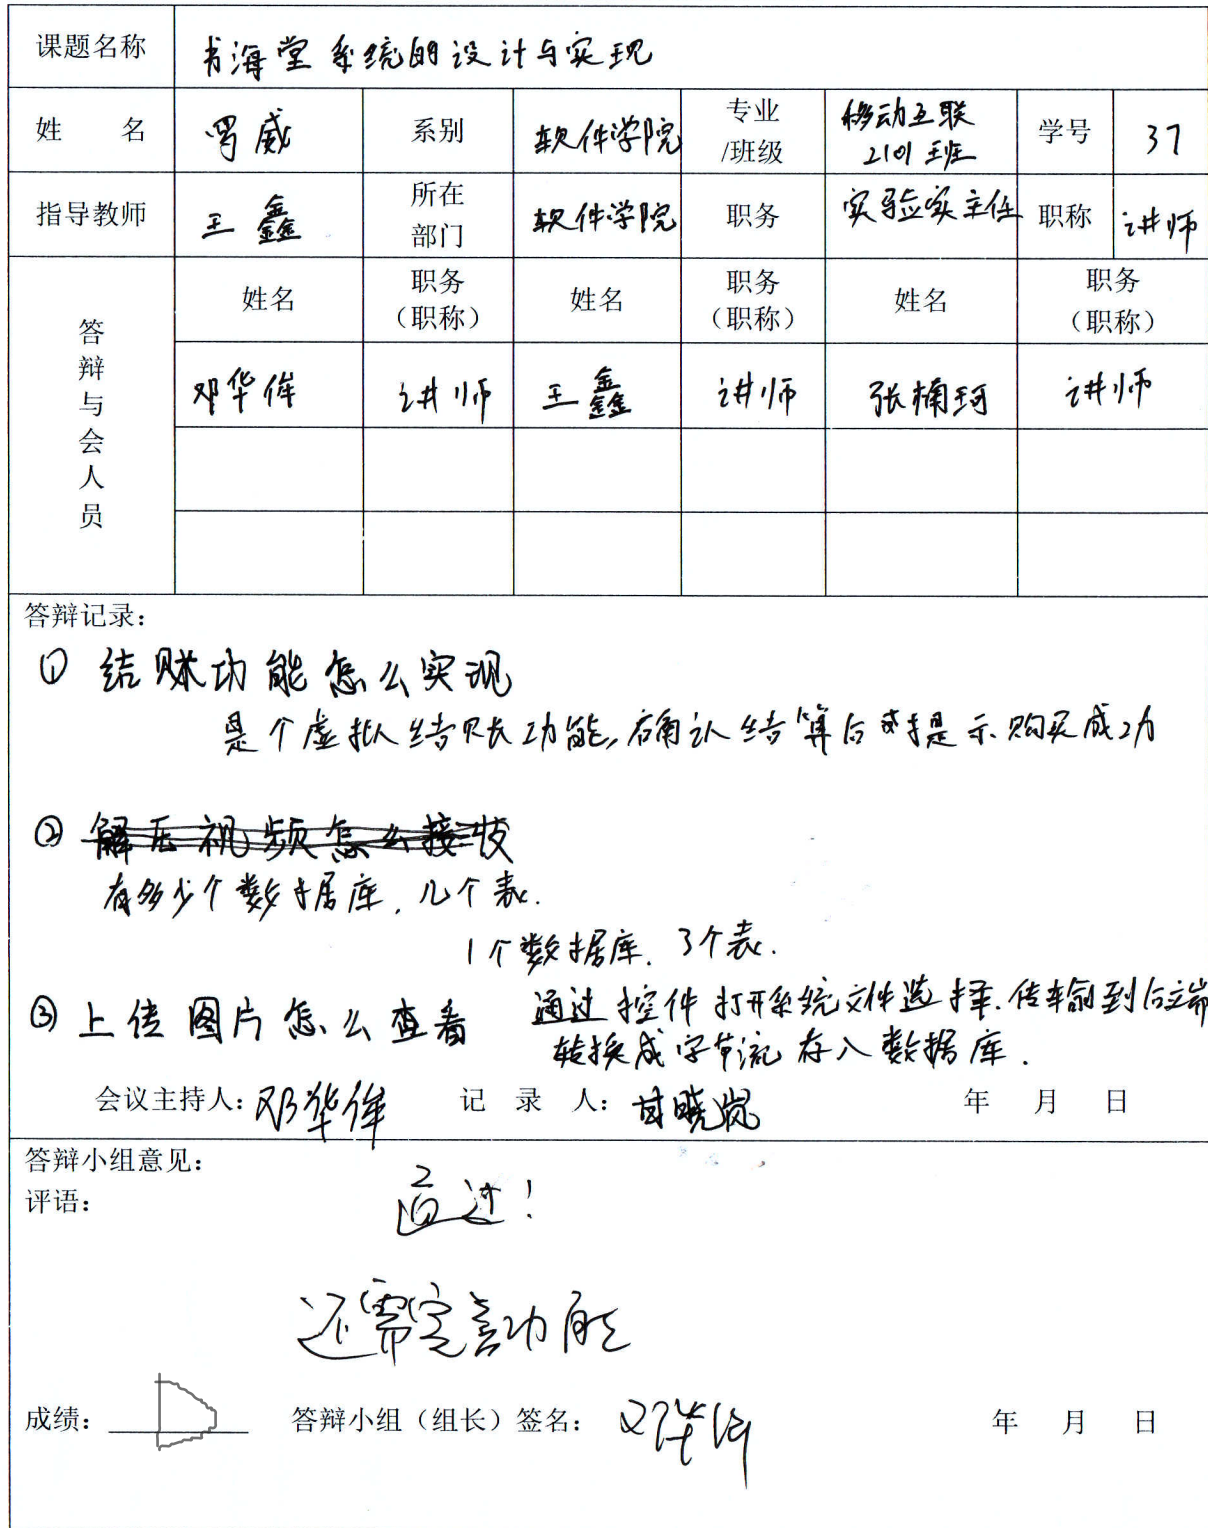 课题名称 书海堂系统的设计与实现
姓 名 罗威 系别 软件学院 专业/班级 移动互联2101班 学号 37
指导教师 王鑫 所在部门 软件学院 职务 实验实主任 职称 讲师
答辩与会人员
姓名 职务（职称） 姓名 职务（职称） 姓名 职务（职称）
邓华侔 讲师 王鑫 讲师 张楠珂 讲师
答辩记录：
① 结账功能怎么实现
是个虚拟结账功能,确认结算后提示购买成功
②
有多少个数据库,几个表.
1个数据库.3个表.
③ 上传图片怎么查看
通过控件打开系统文件选择.传输到后端
转换成字节流存入数据库.
会议主持人：邓华侔 记 录 人：甘晓岚 年 月 日
答辩小组意见：
评语：
通过!
还需完善功能
成绩：D 答辩小组（组长）签名：邓华侔 年 月 日